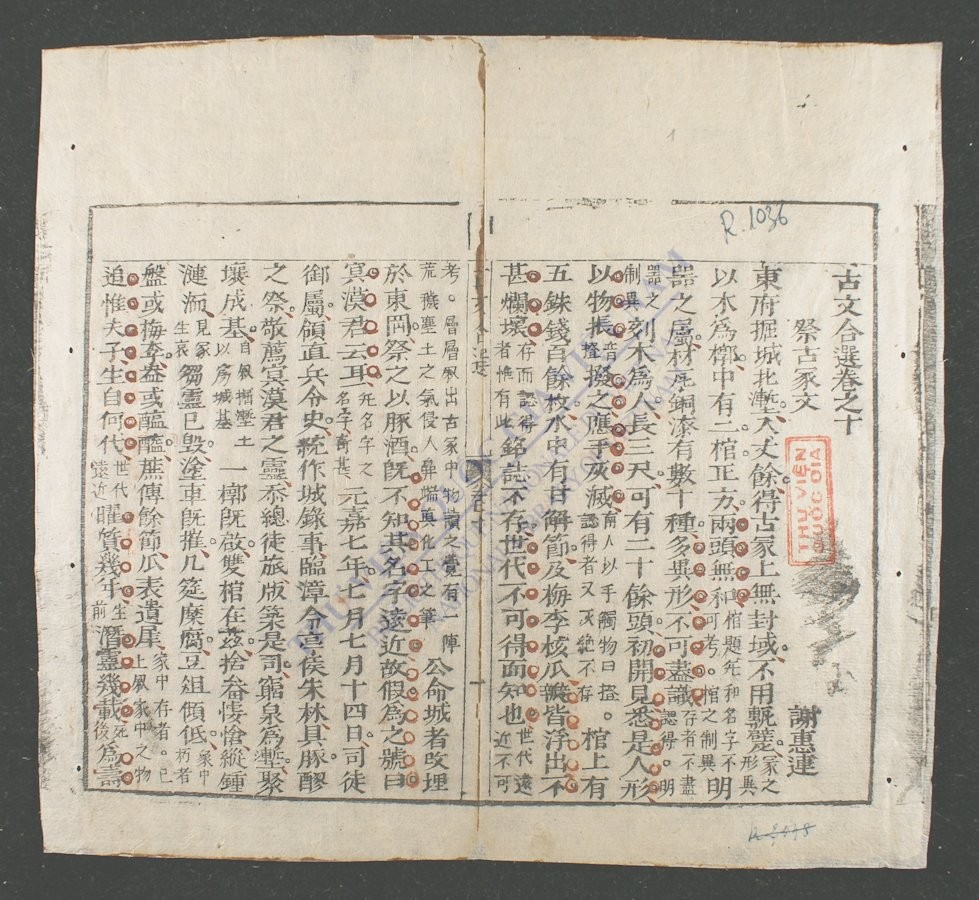 R.1036
古文合選卷之十
祭古冢文
謝惠連
東府掘城北塹入丈餘得古冢上無封域不用甎甓冢之形異
以木爲槨中有二棺正方兩頭無和棺題死和名字不可考。棺之制異明
器之屬材瓦銅漆有數十種多異形不可盡識存者不盡認得。明
器之制異刻木爲人長三尺可有二十餘頭初開見悉是人形
以物棖撥之應手灰滅南人以手觸物曰棖。認得者又灭絶不存棺上有
五銖錢百餘枚水中有甘蔗節及梅李核瓜瓣皆浮出不
甚爛壞存而認得者惟有此銘誌不存世代不可得而知也世代遠近不可
考。層層叙出古冢中物讀之覺有一陣荒蕪塵土之氣侵人鼻端真化工之筆公命城者改埋
於東岡祭之以豚酒旣不知其名字遠近故假爲之號曰
冥漠君云耳死名字之名字奇甚元嘉七年七月七月十四日司徒
御屬領直兵令史統作城錄事臨漳令亭侯朱林具豚醪
之祭敬薦冥漠君之靈忝總徒旅版築是司窮泉爲塹聚
壤成基自叙掘塹土以爲城基一槨旣啟雙棺在茲捨畚悽愴縱鍤
漣洏見冢生哀芻靈已毀塗車旣摧几筵糜腐豆俎傾低冢中朽者
盤或梅李盎或醯醢蔗傳餘節瓜表遺犀冢中存者。已上叙冢中之物
追惟夫子生自何代世代遠近曜質幾年生前潛靈幾載死後爲壽
THƯ VIỆN
QUỐC GIA